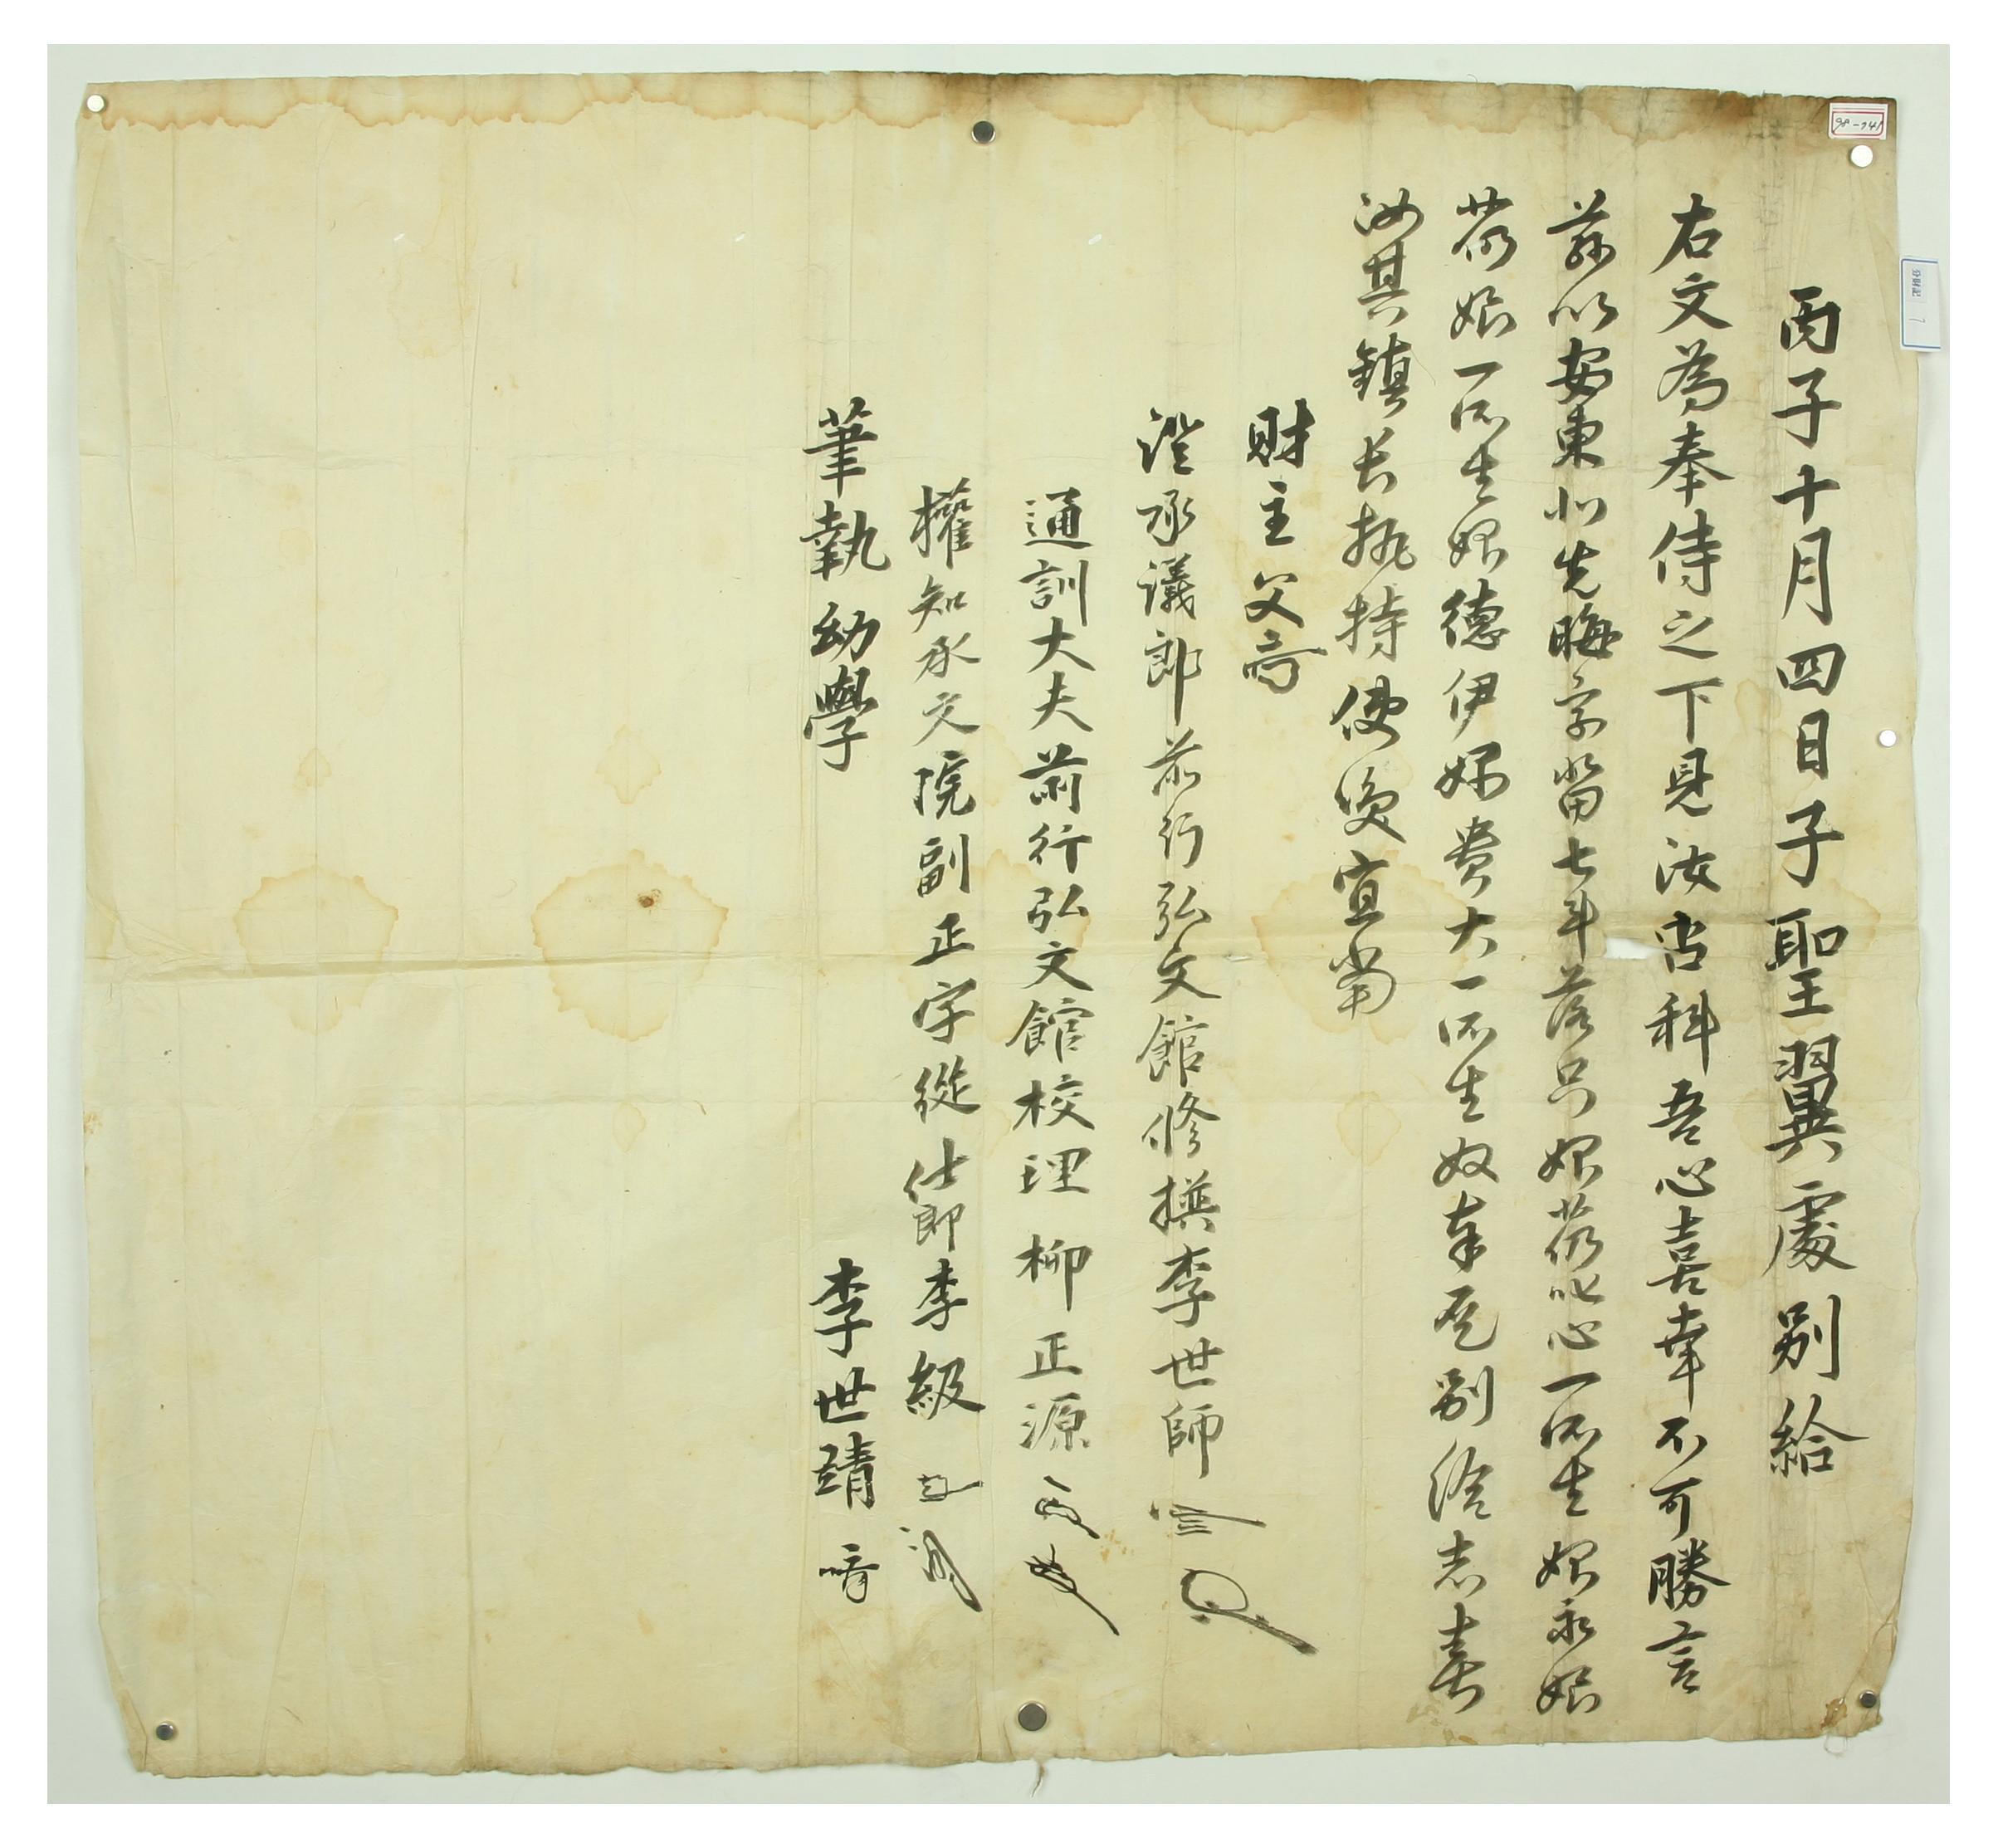 丙子十月四日子聖翼處別給
右文爲奉侍之下見汝占科吾心喜幸不可勝言
玆以安東北先晦字畓七斗落只婢莻叱心一所生婢永娘
莻娘一所生婢德伊婢費大一所生奴奉
別給志喜
汝其鎭長執持使喚宜當
財主父
證承議郎前行弘文館修撰李世師
通訓大夫前行弘文館校理柳正源
權知承文院副正字從仕郎李級
筆執幼學 李世靖
98-741
分財記 7